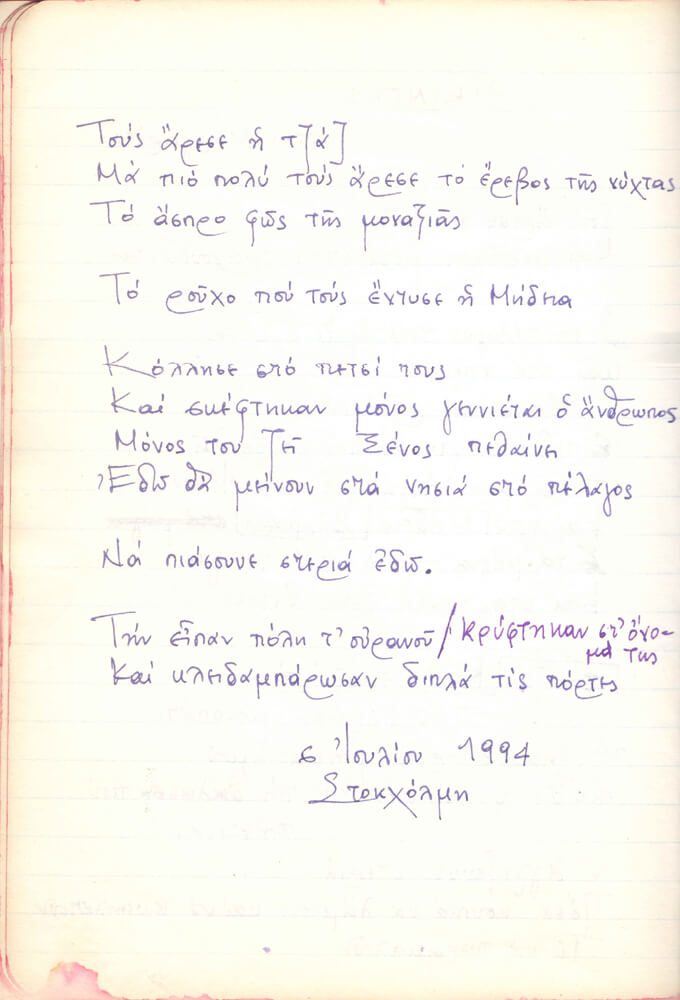 Τούς ἄρεσε ἡ τζάζ
Μά πιό πολύ τούς ἄρεσε τό ἔρεβος τῆς νύχτας
Τό ἄσπρο φῶς τῆς μοναξιᾶς
Τό ροῦχο πού τούς ἔντυσε ἡ Μήδεια
Κόλλησε στό πετσί τους
Καί σκέφτηκαν μόνος γεννιέται ὁ ἄνθρωπος
Μόνος του ζεῖ Ξένος πεθαίνει
Ἐδῶ θά μείνουν στά νησιά στό πέλαγος
Νά πιάσουνε στεριά ἐδῶ.
Τήν εἶπαν πόλη τ' οὐρανοῦ / κρύφτηκαν στ' ὄνο-
μά της
Καί κλειδαμπάρωσαν διπλά τίς πόρτες
6 Ἰουλίου 1994
Στοκχόλμη